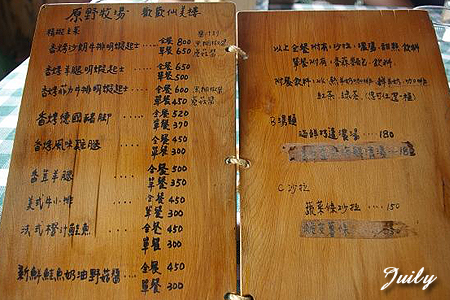 原野牧場 歡歡仙美樓
香烤沙朗牛排明蝦起士 全餐 800
單餐 650
香烤羊腿明蝦起士 全餐 650
單餐 500
香烤菲力牛排明蝦起士 全餐 600
單餐 450
香烤德國豬腳 全餐 520
單餐 370
香烤風味雞腿 全餐 450
單餐 300
香茸羊腿 全餐 500
單餐 350
美式牛小排 全餐 450
單餐 300
法式橙汁鮭魚 全餐 450
單餐 300
新鮮鮭魚奶油野菇醬 全餐 450
單餐 300
以上全餐附有:沙拉、濃湯、甜點、飲料
單餐附有:香蒜麵包、飲料
紅茶、綠茶、
B 湯類
海鮮巧達濃湯 ‥‥180
C 沙拉
蔬菜條沙拉 ‥‥150
Juily